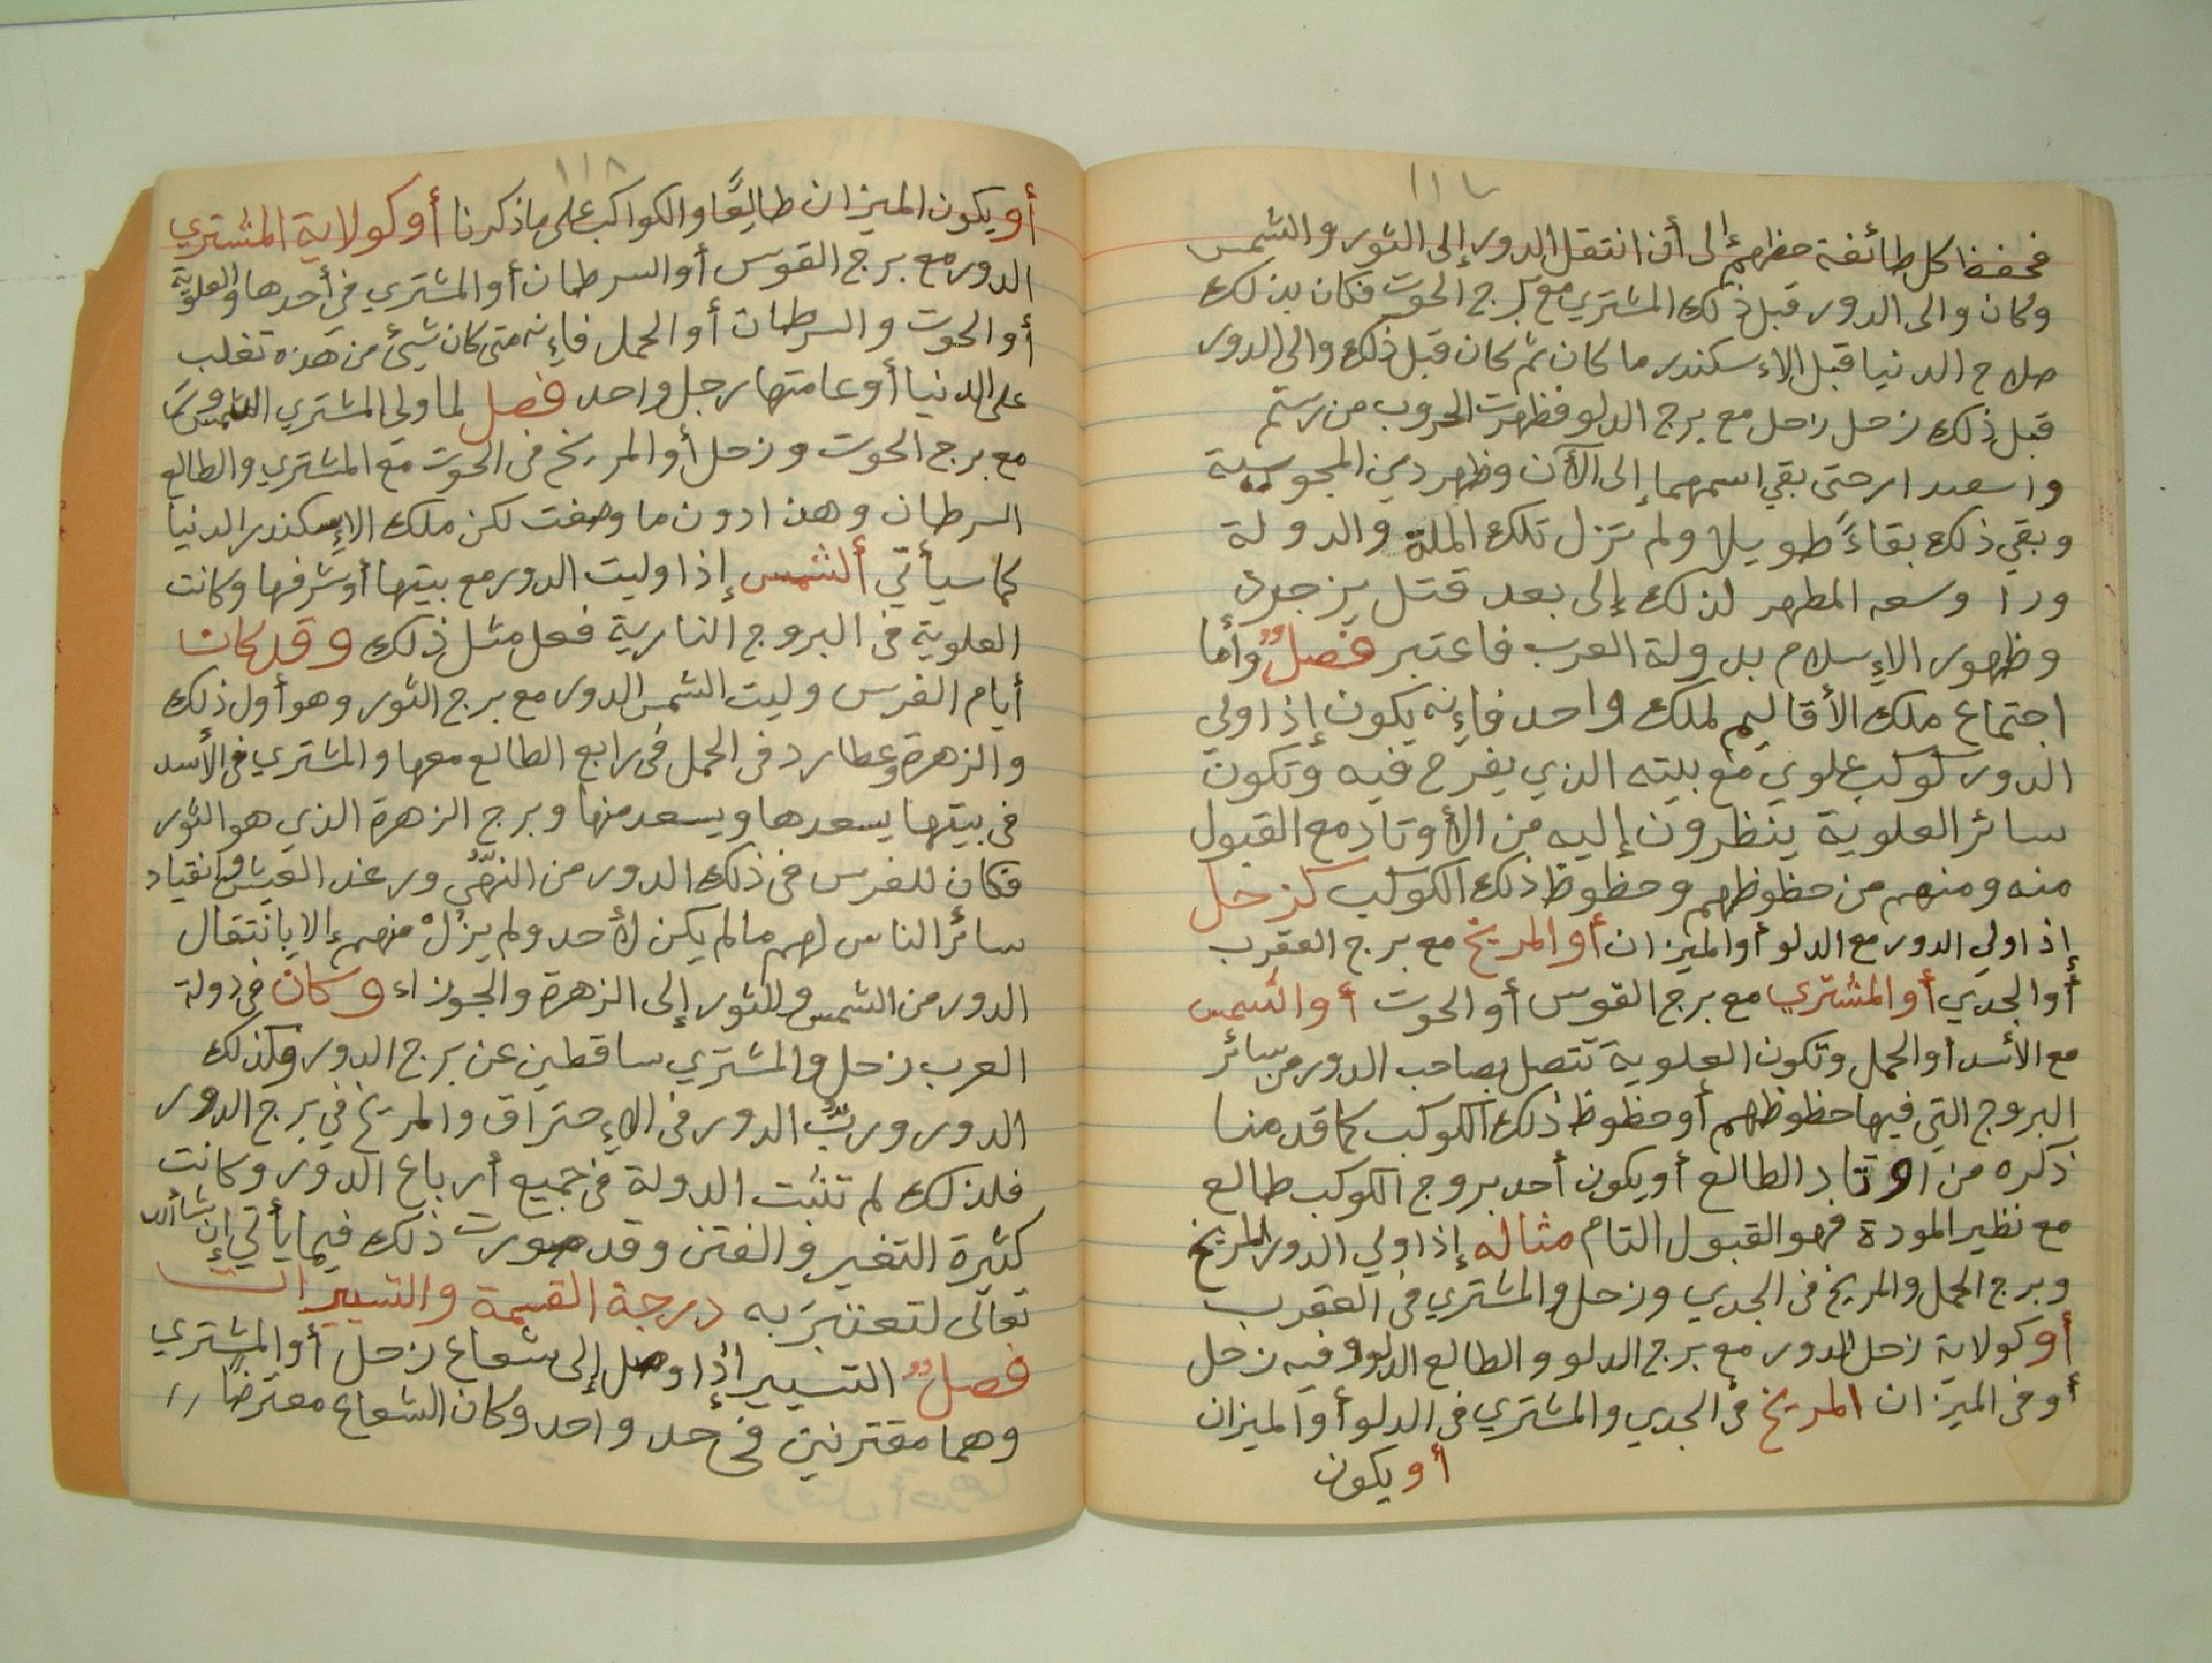 ١١٧
فحفظ كل طائفة حظهم إلى أن انتقل الدور إلى الثور والشمس
وكان والى الدور قبل ذلك المشتري مع برج الحوت فكان بذلك
صلاح الدنيا قبل الإسكندر ما كان ثم كان قبل ذلك والى الدور
قبل ذلك زحل زحل مع برج الدلو فظهرت الحروب من رستم
واسعدار حتى بقي اسمهما إلى الآن وظهر دين المجوسية
وبقي ذلك بقاءً طويلا ولم تزل تلك الملة والدولة
ودا وسعه المطهر لذلك إلى بعد قتل يزجرد
وظهور الإسلام بدولة العرب فاعتبر فصلٌ وأما
اجتماع ملك الأقاليم لملك واحد فإنه يكون إذا ولي
الدور كوكب علوي مع بيته الذي يفرح فيه وتكون
سائر العلوية ينظرون إليه من الأوتاد مع القبول
منه ومنهم من حظوظهم وحظوظ ذلك الكوكب كزحل
إذا ولي الدور مع الدلو أو الميزان أو المريخ مع برج العقرب
أو الجدي أو المشتري مع برج القوس أو الحوت أو الشمس
مع الأسد أو الحمل وتكون العلوية تتصل بصاحب الدور من سائر
البروج التي فيها حظوظهم أو حظوظ ذلك الكوكب كما قدمنا
ذكره من اوتاد الطالع أو يكون أحد بروج الكوكب طالع
مع نظير المودة فهو القبول التام مثاله إذا ولي الدور المريخ
وبرج الحمل والمريخ في الجدي وزحل والمشتري في العقرب
أو كولاية زحل الدور مع برج الدلو والطالع الدلو وفيه زحل
أو في الميزان المريخ في الجدي والمشتري في الدلو أو الميزان
أو يكون
١١٨
أو يكون الميزان طالِعًا والكواكب على ما ذكرنا أو كولاية المشتري
الدور مع برج القوس أو السرطان أو المشتري في أحدها والعلوية
أو الحوت والسرطان أو الحمل فإنه متى كان شيئ من هذه تغلب
على الدنيا أو عامتها رجل واحد فصل لما ولي المشتري
مع برج الحوت وزحل أو المريخ في الحوت مع المشتري والطالع
السرطان وهذا دون ما وصفت لكن ملك الإسكندر الدنيا
كما سيأتي ألشمس إذا وليت الدور مع بيتها أو شرفها وكانت
العلوية في البروج النارية فعل مثل ذلك وقد كان
أيام الفرس وليت الشمس الدور مع برج الثور وهو أول ذلك
والزهرة وعطارد في الحمل في رابع الطالع معها والمشتري في الأسد
في بيتها يسعدها ويسعد منها وبرج الزهرة الذي هو الثور
فكان للفرس في ذلك الدور من ورغد العيش وانقياد
سائر الناس لهم ما لم يكن لأحد ولم يزلْ منهم إلا بانتقال
الدور من الشمس والثور إلى الزهرة والجوزاء وكان في دولة
العرب زحل والمشتري ساقطين عن برج الدور وكذلك
الدور وربُّ الدور في الإحتراق والمريخ في برج الدور
فلذلك لم تثبت الدولة في جميع أرباع الدور وكانت
كثيرة التغير والفتن وقد صورت ذلك فيما يأتي إن شا ألله
تعالى لتعتبرَ به درجة القسمة والتسييرات
فصلٌ التسيير إذا وصل إلى شعاع زحل أو المشتري
وهما مقترنين في حد واحد وكان الشعاع معترضًا